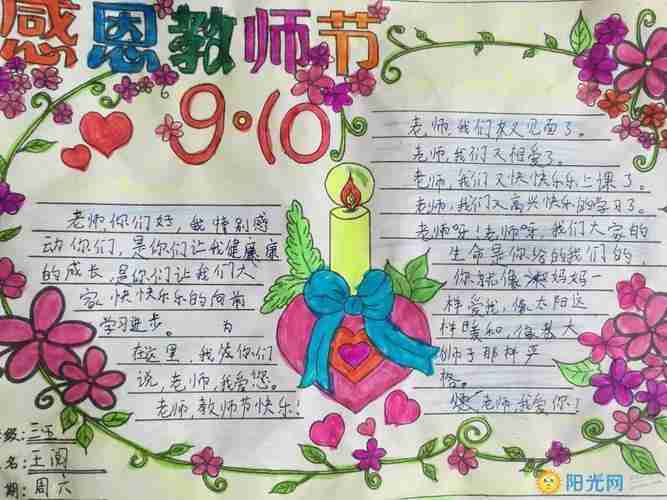 感恩教师节
9·10
老师,你们好,我特别感
动你们,是你们让我健康康
的成长,是你们让我们大
家快快乐乐的向前
学习进步。 为
在这里,我给你们
说,老师,我爱您。
老师,教师节快乐!
老师,我们又见面了。
老师,我们又相爱了。
老师,我们又快快乐乐上课了。
老师,我们又高兴快乐的学习了。
老师呀!老师呀,我们大家的
生命是你给的我们的,
你就像妈妈一
样爱我,像太阳这
样暖和,像大
狮子那样严
格。
老师,我爱你!
级:三五
名:王阅
期:周六
阳光网